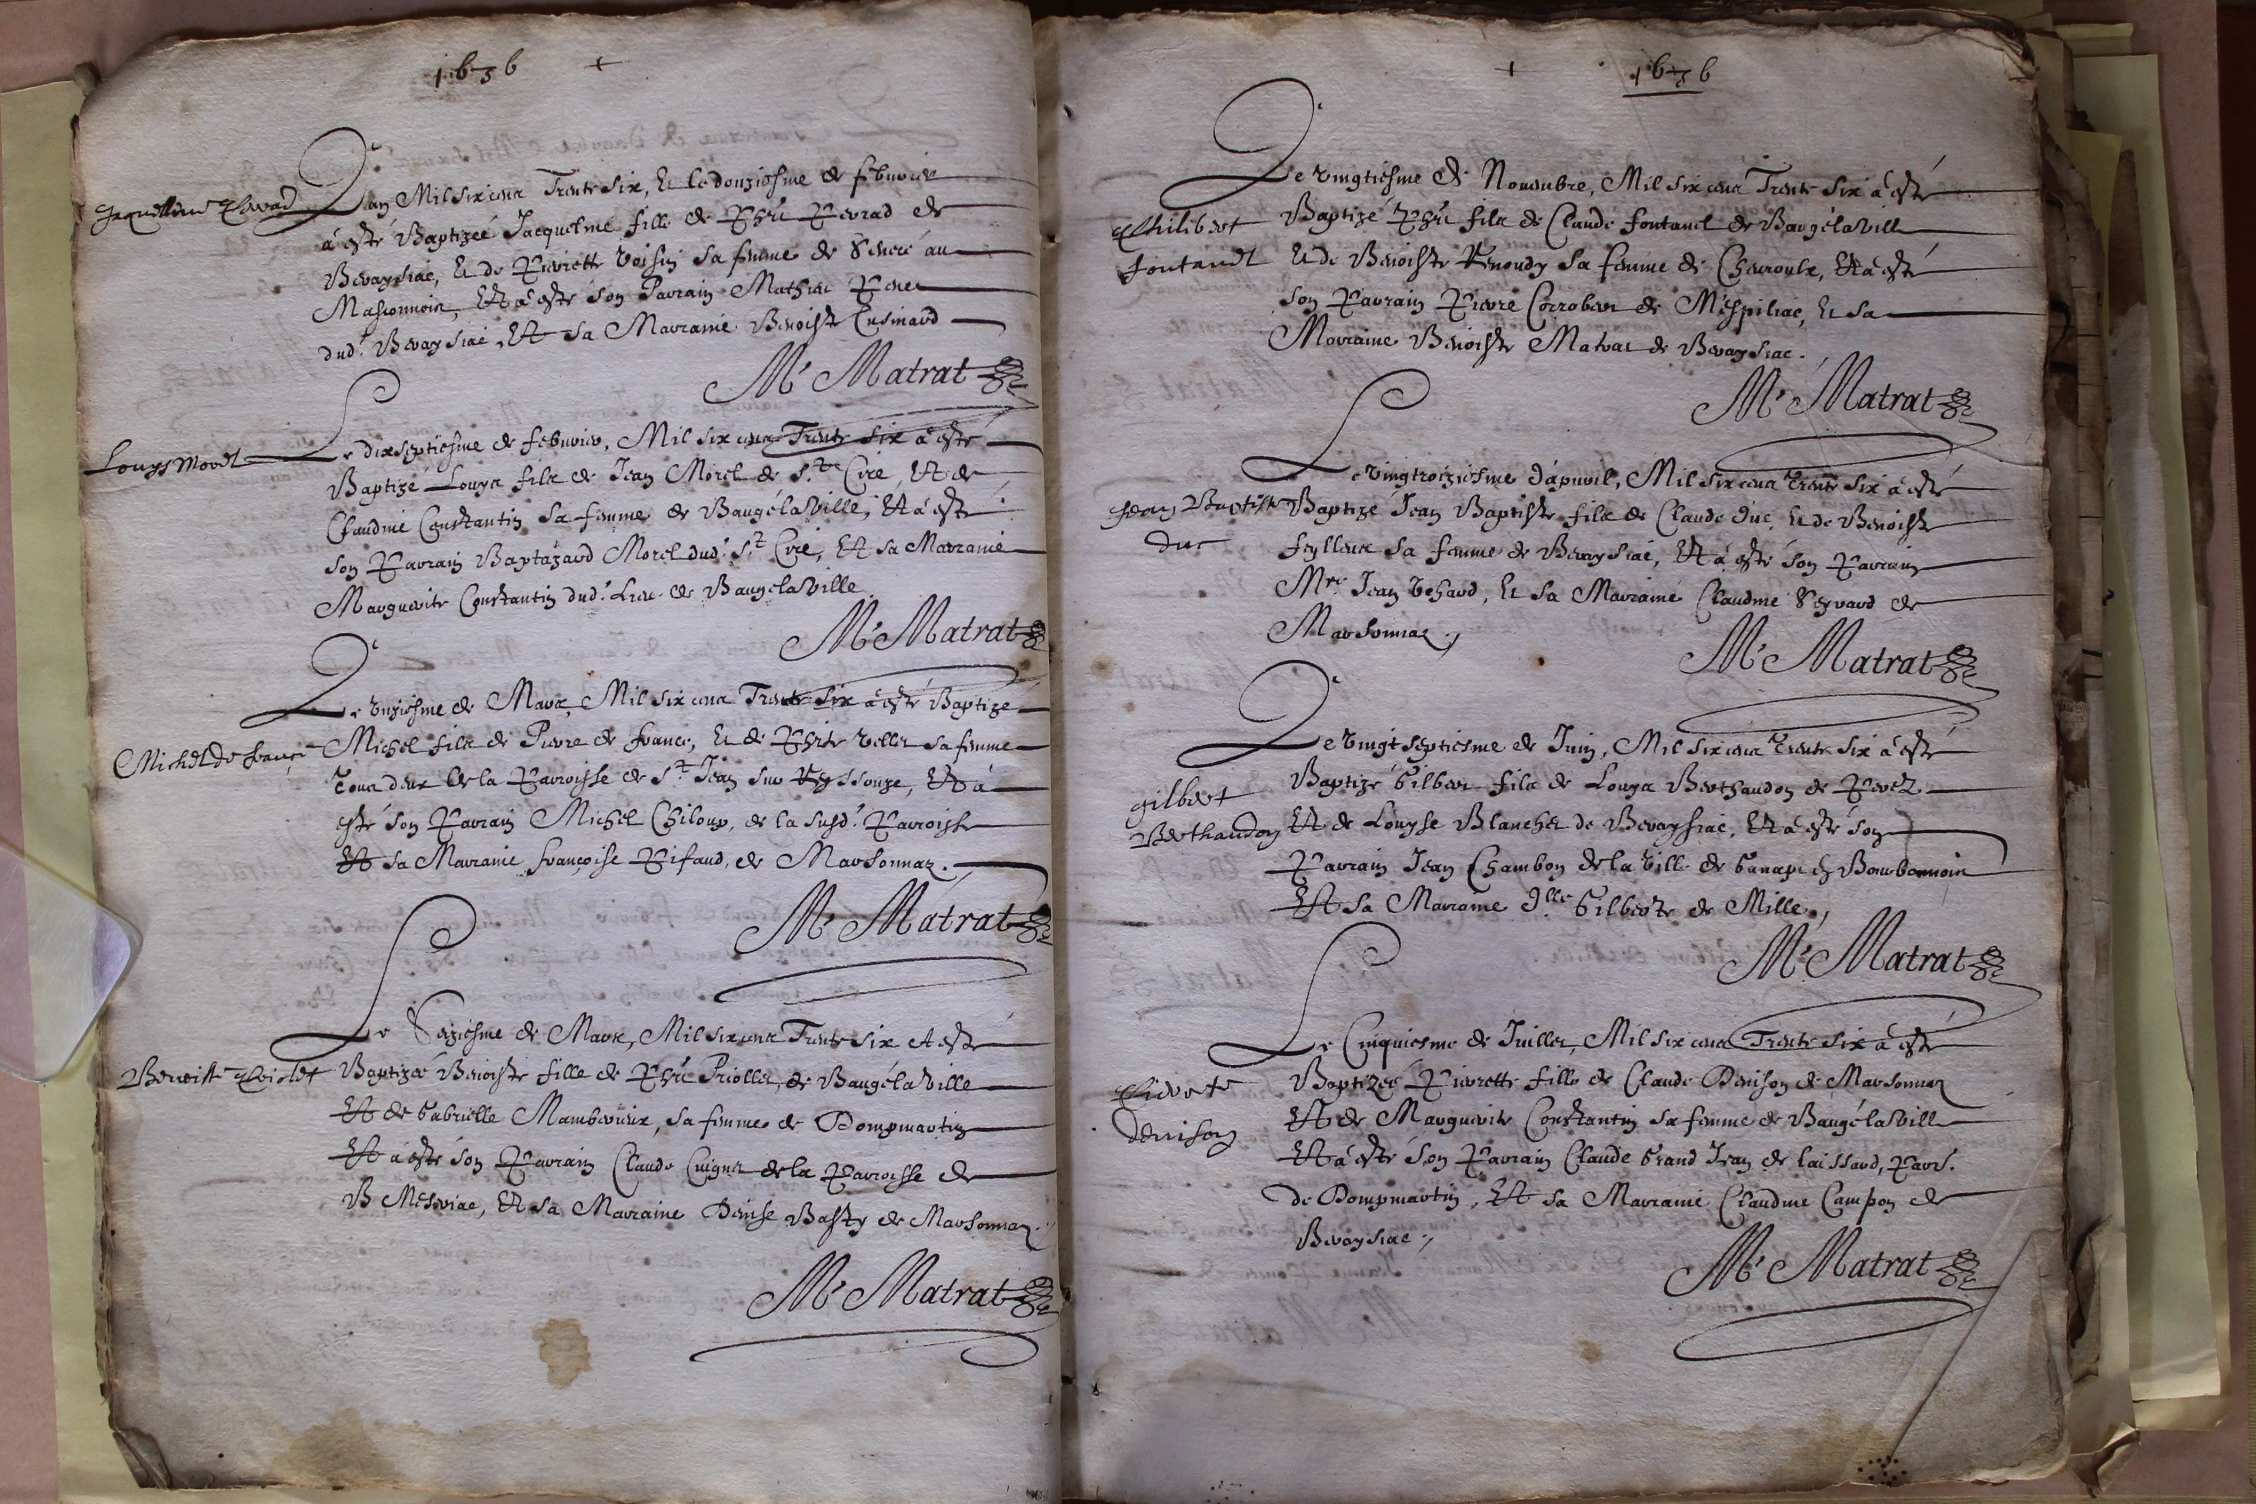 1636
Jacquelline Pevrad
L'an Mil six cens Trente six, et le douziesme de febvrier
à esté Baptizée Jacquelme fille de Phû Pevrad de
Bevaysiac, Et de Pierrette Voisin sa femme de Senecé au
Masconnoin, Et à esté son Parrain Mathieu
dud.t Bevaysiac, Et sa Marraine Benoiste Cusinard
Mr Matrat
Louys Morel
Le dixseptiesme de febvrier, Mil six cens Trente six à esté
Baptizé Louys filz de Jean Morel de St Ciré, Et de
Claudine Constantin sa femme de BaugélaVille, Et à esté
son Parrain Baptazard Morel dud.t St Ciré, Et sa Marraine
Marguerite Constantin dud.t Lieu de BaugélaVille
Mr Matrat
Michel de france
Le unziesme de Mars, Mil six cens Trente six à esté Baptizé
Michel filz de Pierre de france, Et de Phite Vellet sa femme
Tous deux de la Parroisse de St Jean sur Reyssouze, Et à
esté son Parrain Michel Chiloup, de la susd.t Parroisse
Et sa Marraine françoise Pifaud, de Marsonnaz.
Mr Matrat
Benoiste Priolet
Le Seziesme de Mars, Mil six cens Trente six A esté
Baptizée Benoiste fille de Phû Priollet, de BaugélaVille
Et de Gabrielle Mamberieux, sa femme de Dompmartin
Et à esté son Parrain Claude Cuignet de la Parroisse de
B Mesriac, Et sa Marraine Denise Basty de Marsonnaz.
Mr Matrat
1636
Philibert
fontanel
Le vingtiesme de Novembre, Mil six cens Trente six à esté
Baptizé Phû filz de Claude fontanel de BaugélaVille
Et de Benoiste Renoudy sa femme de Chevroulx, Et à esté
son Parrain Pierre Corrobert de Mespiliac, Et sa
Marraine Benoiste Matrat de Bevaysiac.
Mr Matrat
Jean Baptiste
duc
Le vingtroiziesme d'apvril, Mil six cens Trente six à esté
Baptizé Jean Baptiste filz de Claude duc, Et de Benoiste
feylleux sa femme de Bevaysiac, Et à esté son Parrain
Mre Jean Vohard, Et sa Marraine Claudine Seyvard de
Marsonnaz.
Mr Matrat
gilbert
Berthaudon
Le Vingt septiesme de Juin, Mil six cens Trente six à esté
Baptizé Gilbert filz de Louys Berthaudon de Perez
Et de Louyse Blanchet de Bevaysiac, Et à esté son
Parrain Jean Chambon de la Ville de Ganapt en Bourbonnoin
Et sa Marraine dlle Gilberte de Mille,
Mr Matrat
Pierete
denison
Le Cinquiesme de Juillet, Mil six cens Trente six à esté
Baptizee Pierrette fille de Claude Denison de Marsonnaz
Et de Marguerite Constantin sa femme de BaugélaVille
Et à esté son Parrain Claude Grand Jean de laissard, Parr.
de Dompmartin, Et sa Marraine Claudine Campon de
Bevaysiac.
Mr Matrat